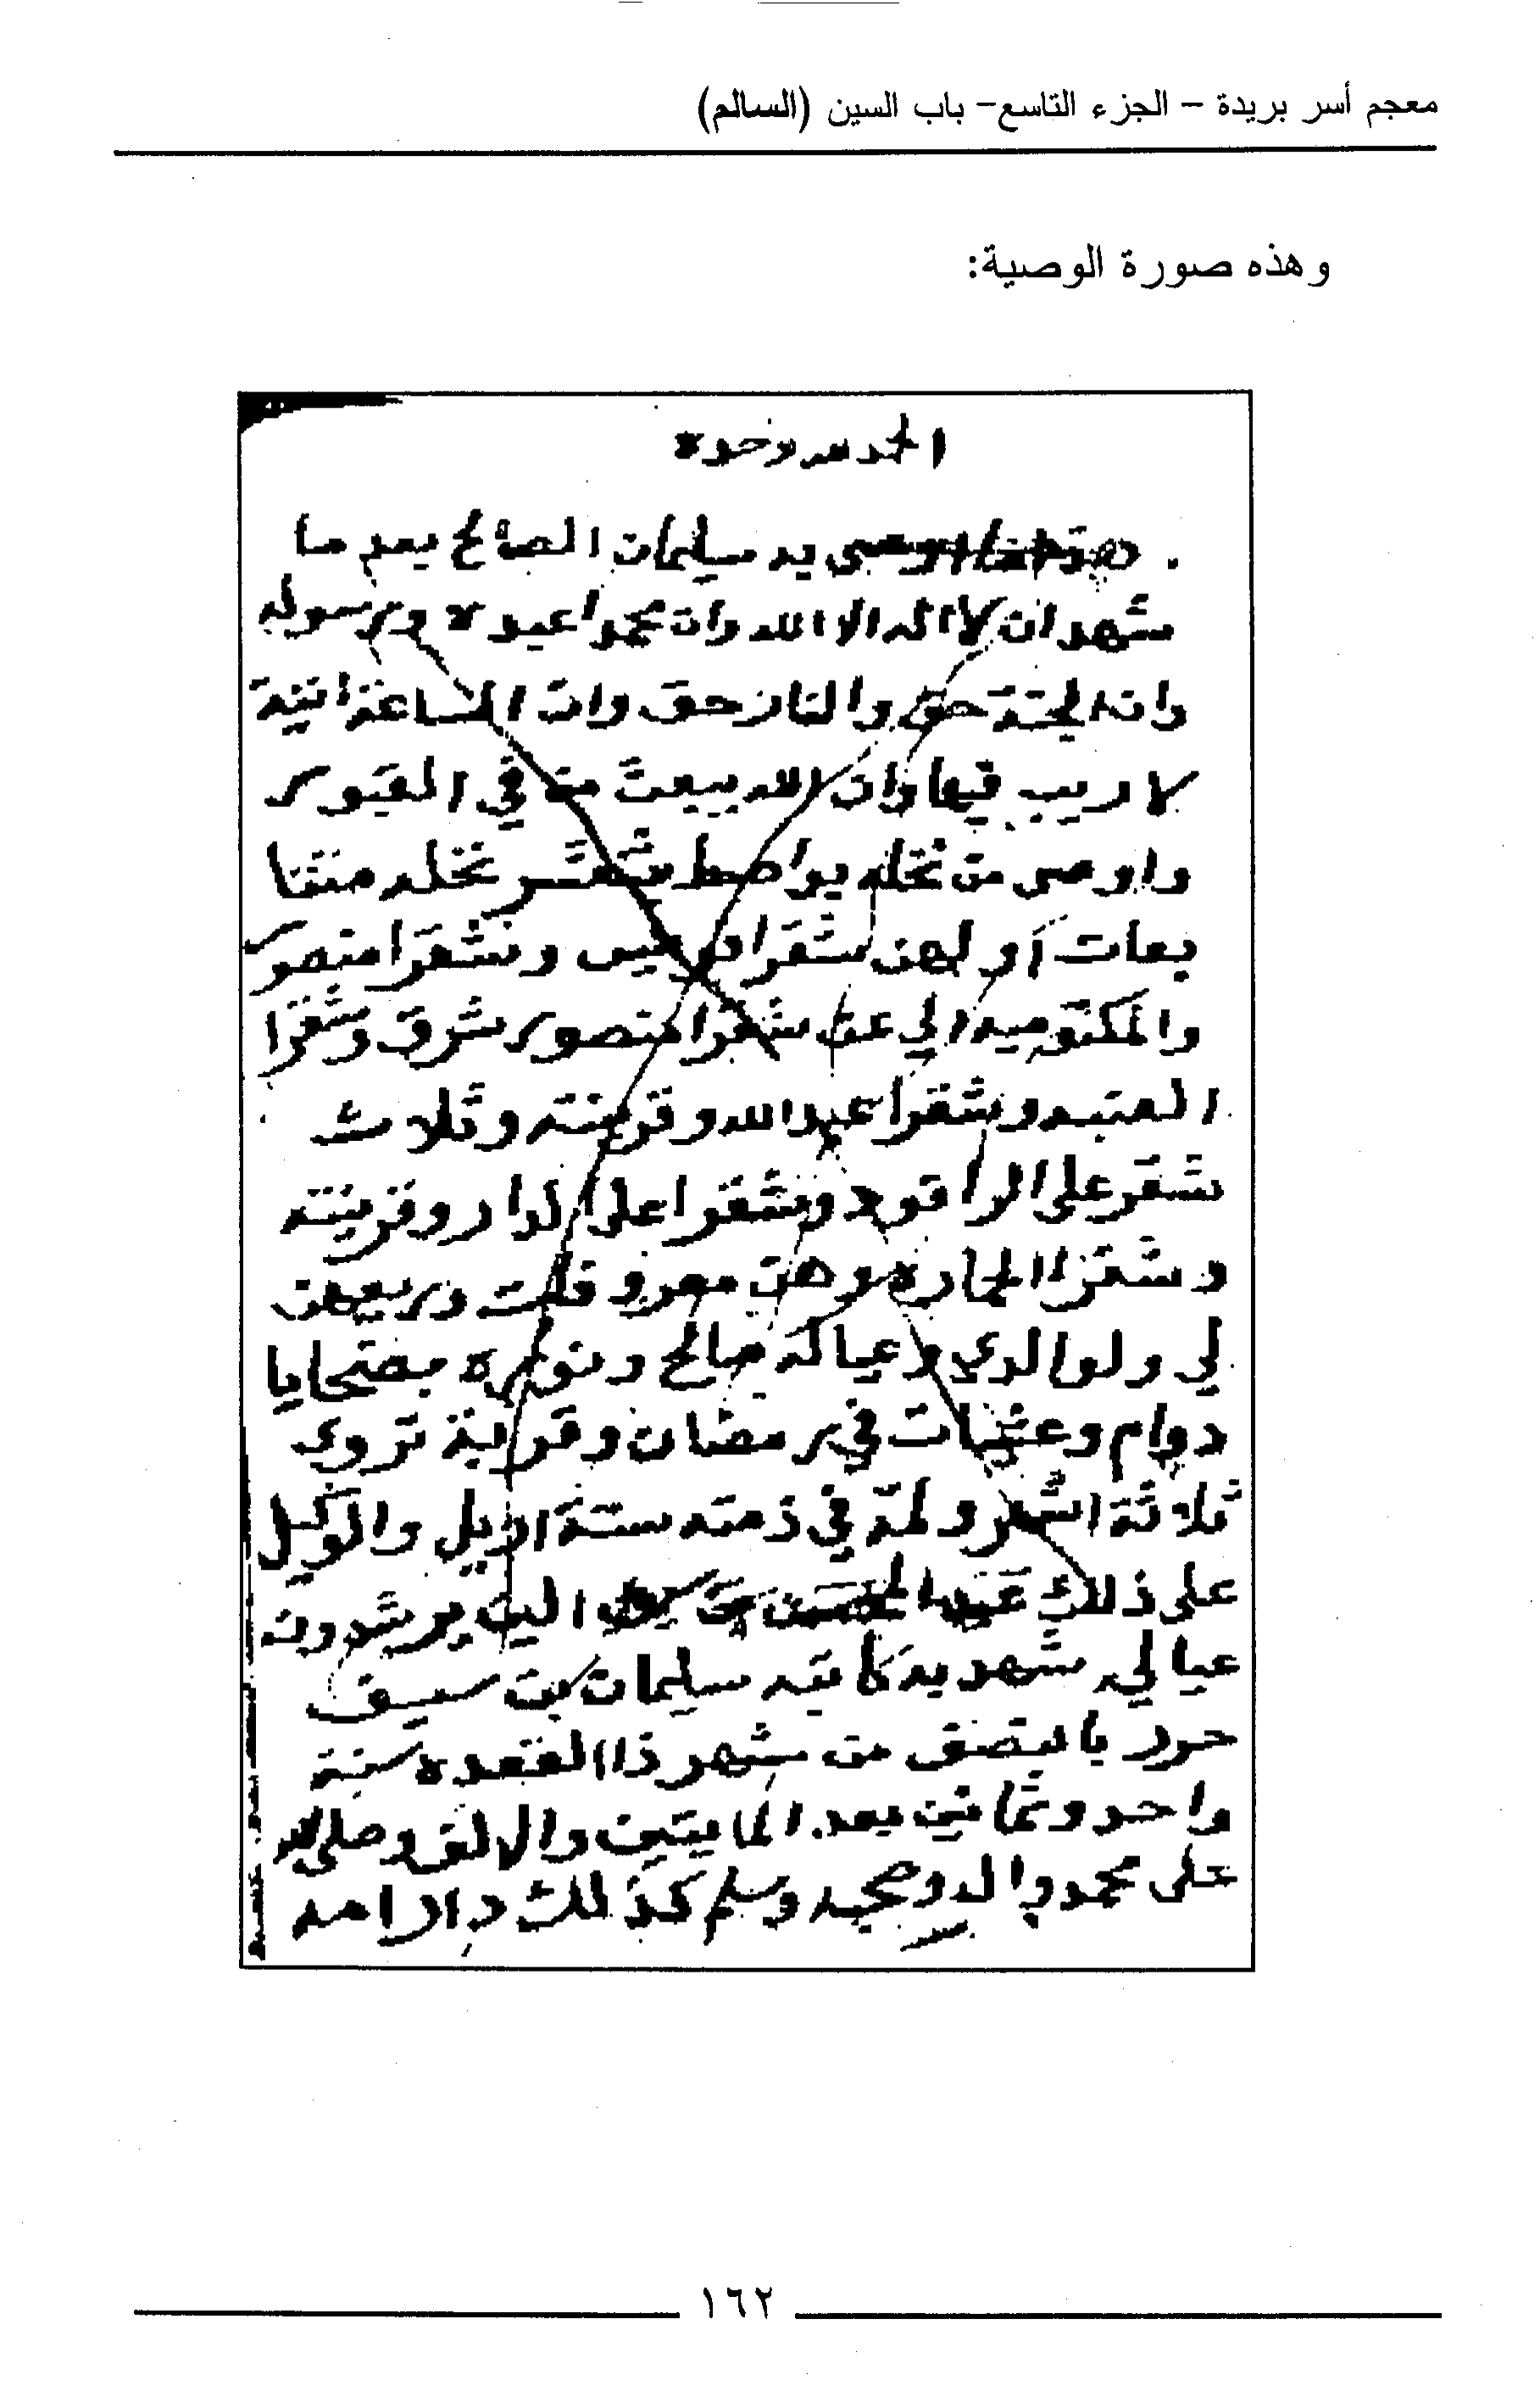 معجم أسر بريدة – الجزء التاسع– باب السين (السالم)
وهذه صورة الوصية:
الحمد لله وحده
هذا ما اوصى به سليمان الصالح بعد ما
شهد ان لا اله الا الله وان محمدا عبده ورسوله
وان الجنة حق والنار حق وان الساعة اتية
لا ريب فيها وان الله يبعث من في القبور
واوصى من نخله عشر نخله
شقرا وشقرا منصور
والمكتوميه الي عن شقرا منصور شرق وشقرا
وشقرا عبدالله وقرينته وثلاث
شقر على الراقود وشقرا على الدار وقرينته
وشقرا وهن معروفات وريعهن
لي ولوالدي وعياله صالح ونوره بضحايا
دوام وعشيات في رمضان وقربة تروى
ثلاثة اشهر وله في ذمته ستة اريل والوكيل
على ذلك الين يرشدون
عيالي شهد به كاتبه سليمان بن سيف
حرر بالنصف من شهر ذا القعده سنة
واحد وثمانين بعد المايتين والالف وصلى الله
على محمد واله وصحبه وسلم كذلك
١٦٢